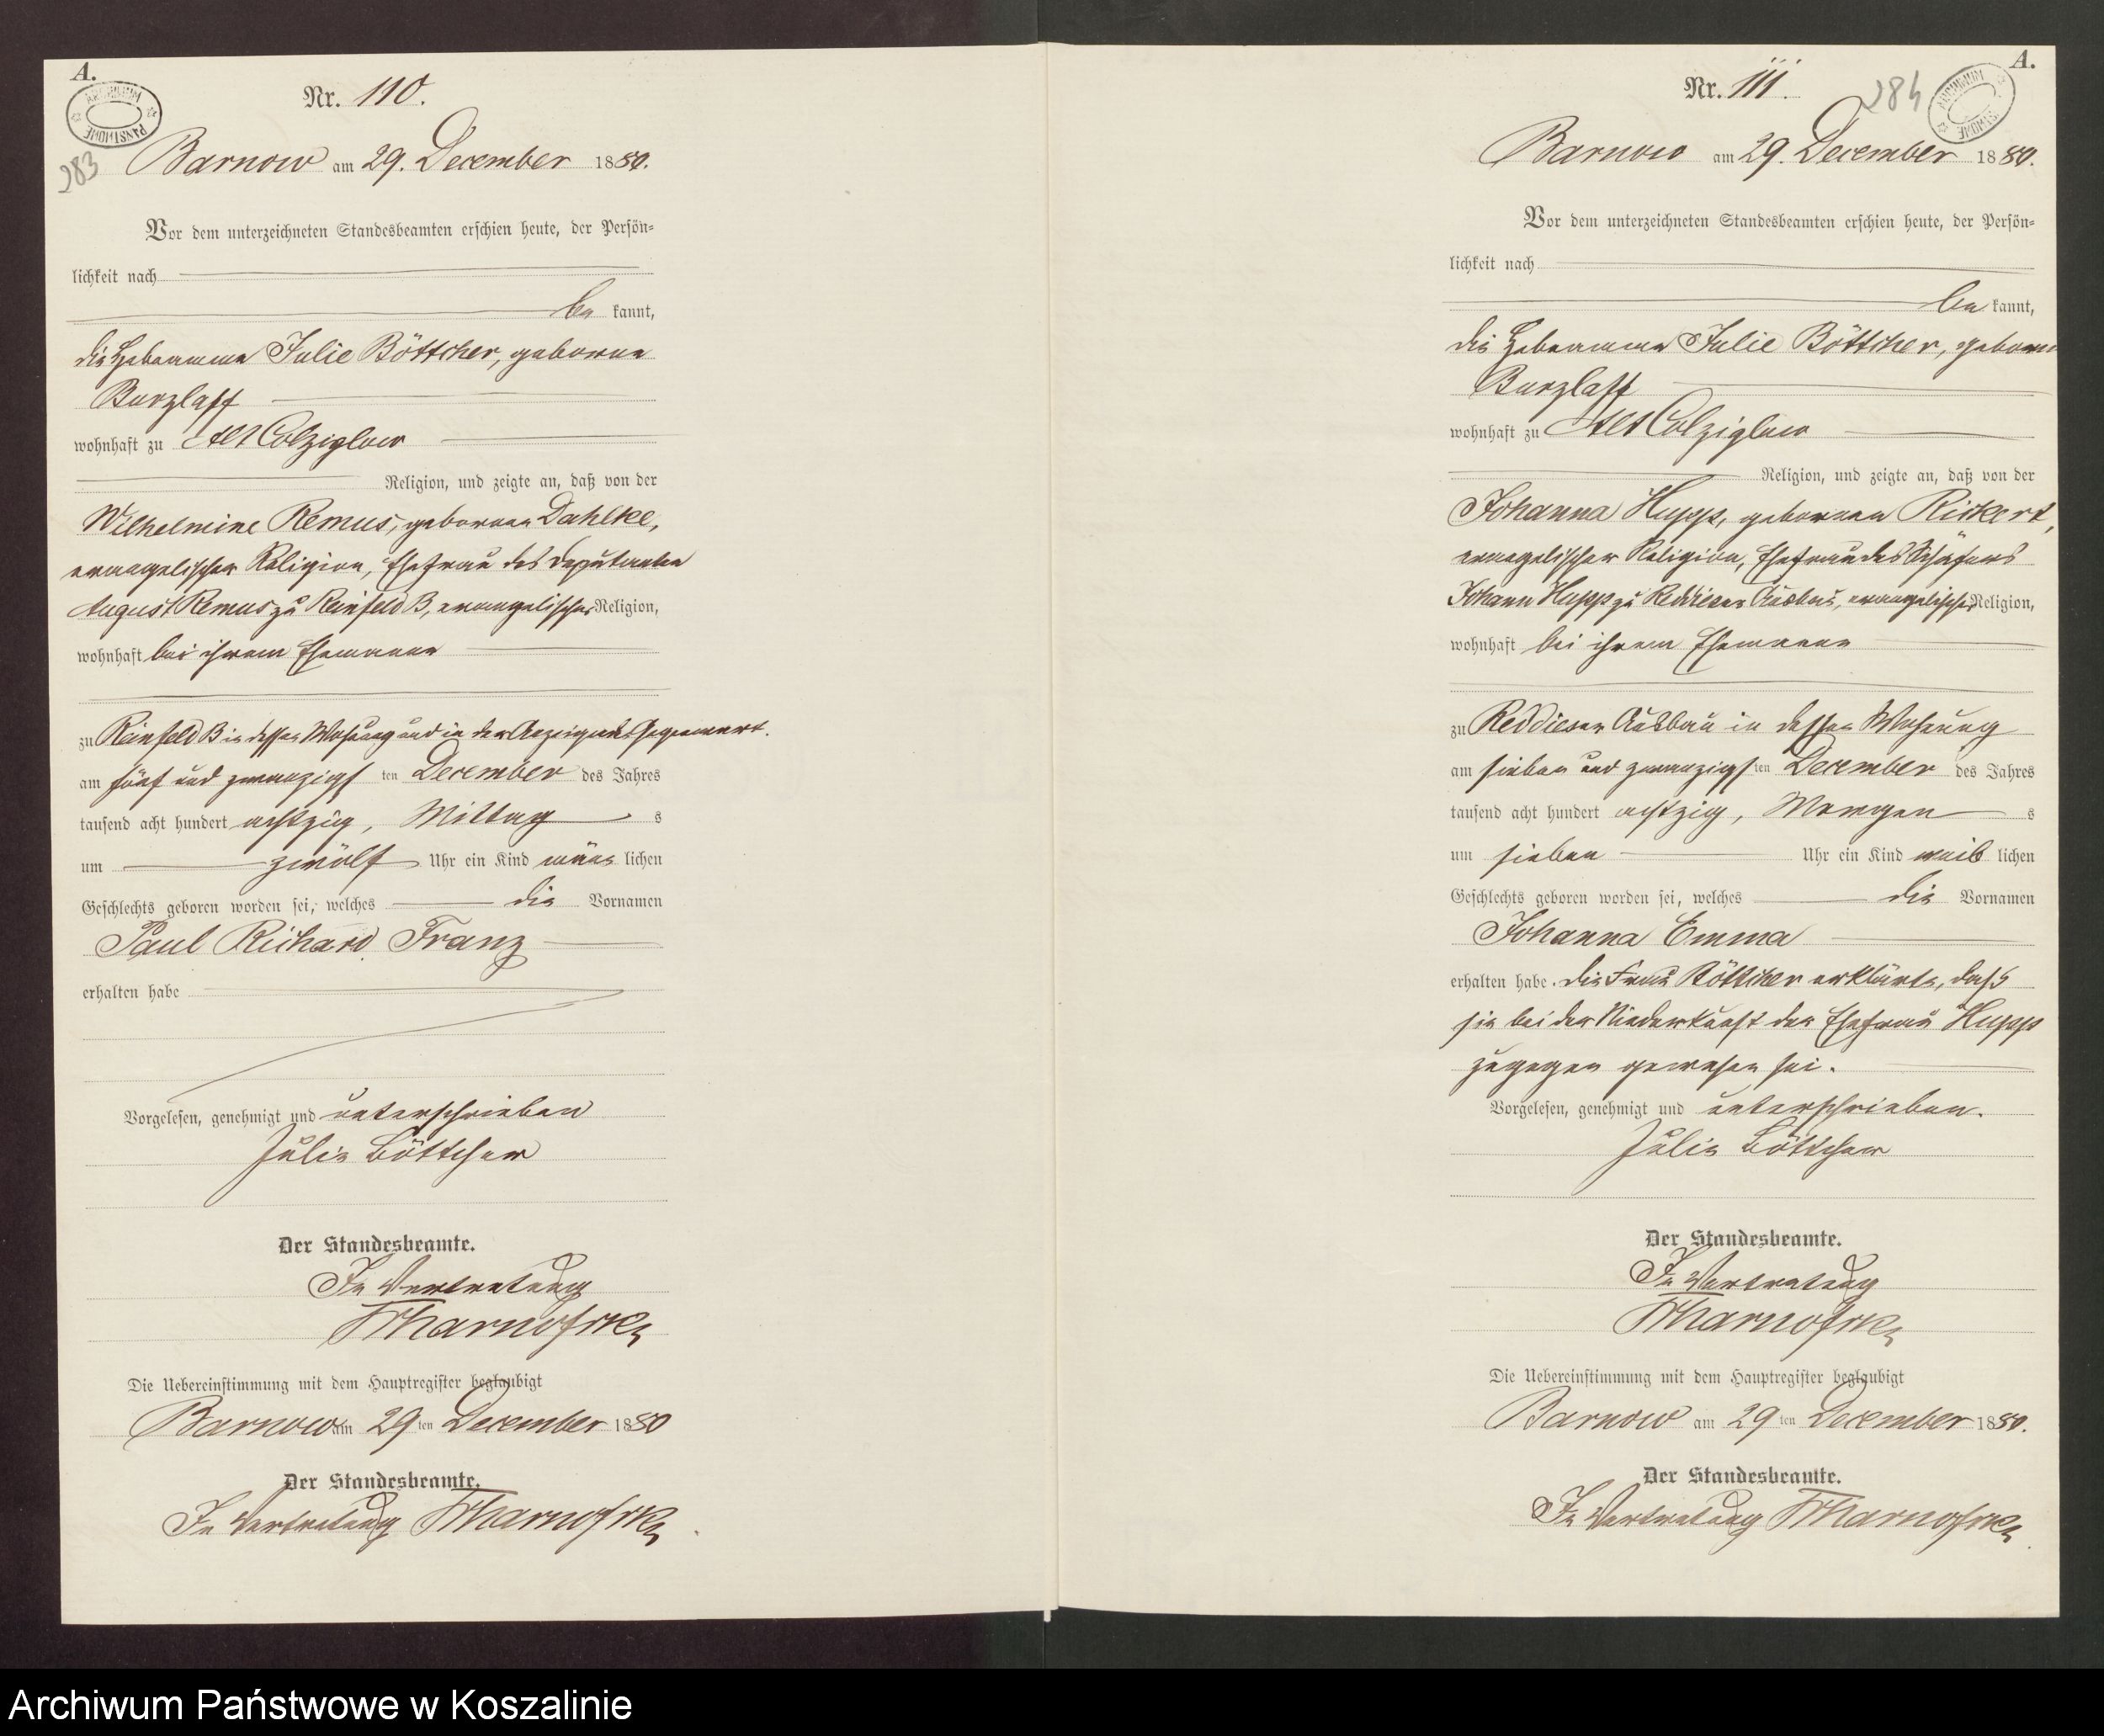 A.
ARCHIWUM PAŃSTWOWE
283
Nr. 110.
Barnow am 29. December 1880.
Vor dem unterzeichneten Standesbeamten erschien heute, der Persön-
lichkeit nach
be kannt,
die Hebeamme Julie Böttcher, geborne
Burzlaff
wohnhaft zu Alt Colziglow
Religion, und zeigte an, daß von der
Wilhelmine Remus, gebornen Dahlke,
evangelischer Religion, Ehefrau des Deputanten
August Remus zu Reinfeld B, evangelischer Religion,
wohnhaft bei ihrem Ehemanne
zu Reinfeld B in dessen Wohnung und in der Anzeigenden Gegenwart.
am fünf und zwanzigs ten December des Jahres
tausend acht hundert achtzig, Mittag s
um zwölf Uhr ein Kind männ lichen
Geschlechts geboren worden sei, welches die Vornamen
Paul Richard Franz
erhalten habe
Vorgelesen, genehmigt und unterschrieben
Julie Böttcher
Der Standesbeamte.
In Vertretung
Die Uebereinstimmung mit dem Hauptregister beglaubigt
Barnow am 29 ten December 1880
Der Standesbeamte.
In Vertretung
A.
ARCHIWUM PAŃSTWOWE
284
Nr. 111.
Barnow am 29. December 1880.
Vor dem unterzeichneten Standesbeamten erschien heute, der Persön-
lichkeit nach
be kannt,
die Hebeamme Julie Böttcher, geborne
Burzlaff
wohnhaft zu Alt Colziglow
Religion, und zeigte an, daß von der
Johanna Hupp, gebornen Rickert,
evangelischer Religion, Ehefrau des Schäfers
Johann Hupp zu Reddieser Ausbau, evangelischer Religion,
wohnhaft bei ihrem Ehemanne
zu Reddieser Ausbau in dessen Wohnung
am sieben und zwanzigs ten December des Jahres
tausend acht hundert achtzig, Morgen s
um sieben Uhr ein Kind weib lichen
Geschlechts geboren worden sei, welches die Vornamen
Johanna Emma
erhalten habe. Die Frau Böttcher erklärte, daß
sie bei der Niederkunft der Ehefrau Hupp
zugegen gewesen sei.
Vorgelesen, genehmigt und unterschrieben.
Julie Böttcher
Der Standesbeamte.
In Vertretung
Die Uebereinstimmung mit dem Hauptregister beglaubigt
Barnow am 29 ten December 1880.
Der Standesbeamte.
In Vertretung
Archiwum Państwowe w Koszalinie